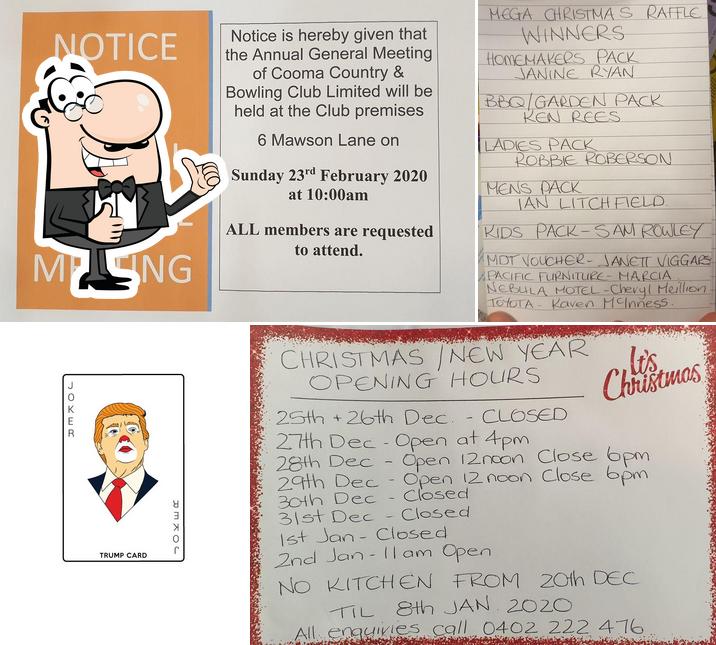 NOTICE
MEETING
Notice is hereby given that
the Annual General Meeting
of Cooma Country &
Bowling Club Limited will be
held at the Club premises
6 Mawson Lane on
Sunday 23rd February 2020
at 10:00am
ALL members are requested
to attend.
MEGA CHRISTMAS RAFFLE
WINNERS
HOMEMAKERS PACK
JANINE RYAN
BBQ/GARDEN PACK
KEN REES
LADIES PACK
ROBBIE ROBERSON
MENS PACK
IAN LITCHFIELD
KIDS PACK - SAM ROWLEY
MDT VOUCHER - JANETT VIGGARS
PACIFIC FURNITURE - MARCIA
NEBULA MOTEL - Cheryl Meillion
TOYOTA - Karen McInness.
JOKER
TRUMP CARD
JOKER
CHRISTMAS / NEW YEAR
OPENING HOURS
It's
Christmas
25th + 26th Dec. - CLOSED
27th Dec - Open at 4pm
28th Dec - Open 12noon Close 6pm
29th Dec - Open 12 noon Close 6pm
30th Dec - Closed
31st Dec - Closed
1st Jan - Closed
2nd Jan - 11am Open
NO KITCHEN FROM 20th DEC
TIL 8th JAN. 2020
All enquiries call 0402 222 476